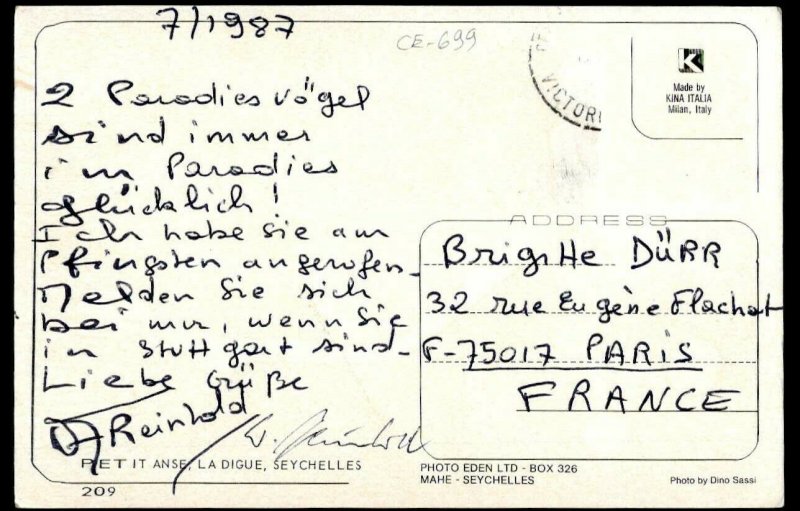 7/1987
CE-699
VICTORI
K
Made by
KINA ITALIA
Milan, Italy
2 Paradiesvögel
sind immer
im Paradies
glücklich!
Ich habe Sie an
Pfingsten angerufen.
Melden Sie sich
bei mir, wenn Sie
in Stuttgart sind.
Liebe Grüße
Reinhold
ADDRESS
Brigitte DÜRR
32 rue Eugène Flachat
F-75017 PARIS
FRANCE
PETIT ANSE, LA DIGUE, SEYCHELLES
209
PHOTO EDEN LTD - BOX 326
MAHE - SEYCHELLES
Photo by Dino Sassi